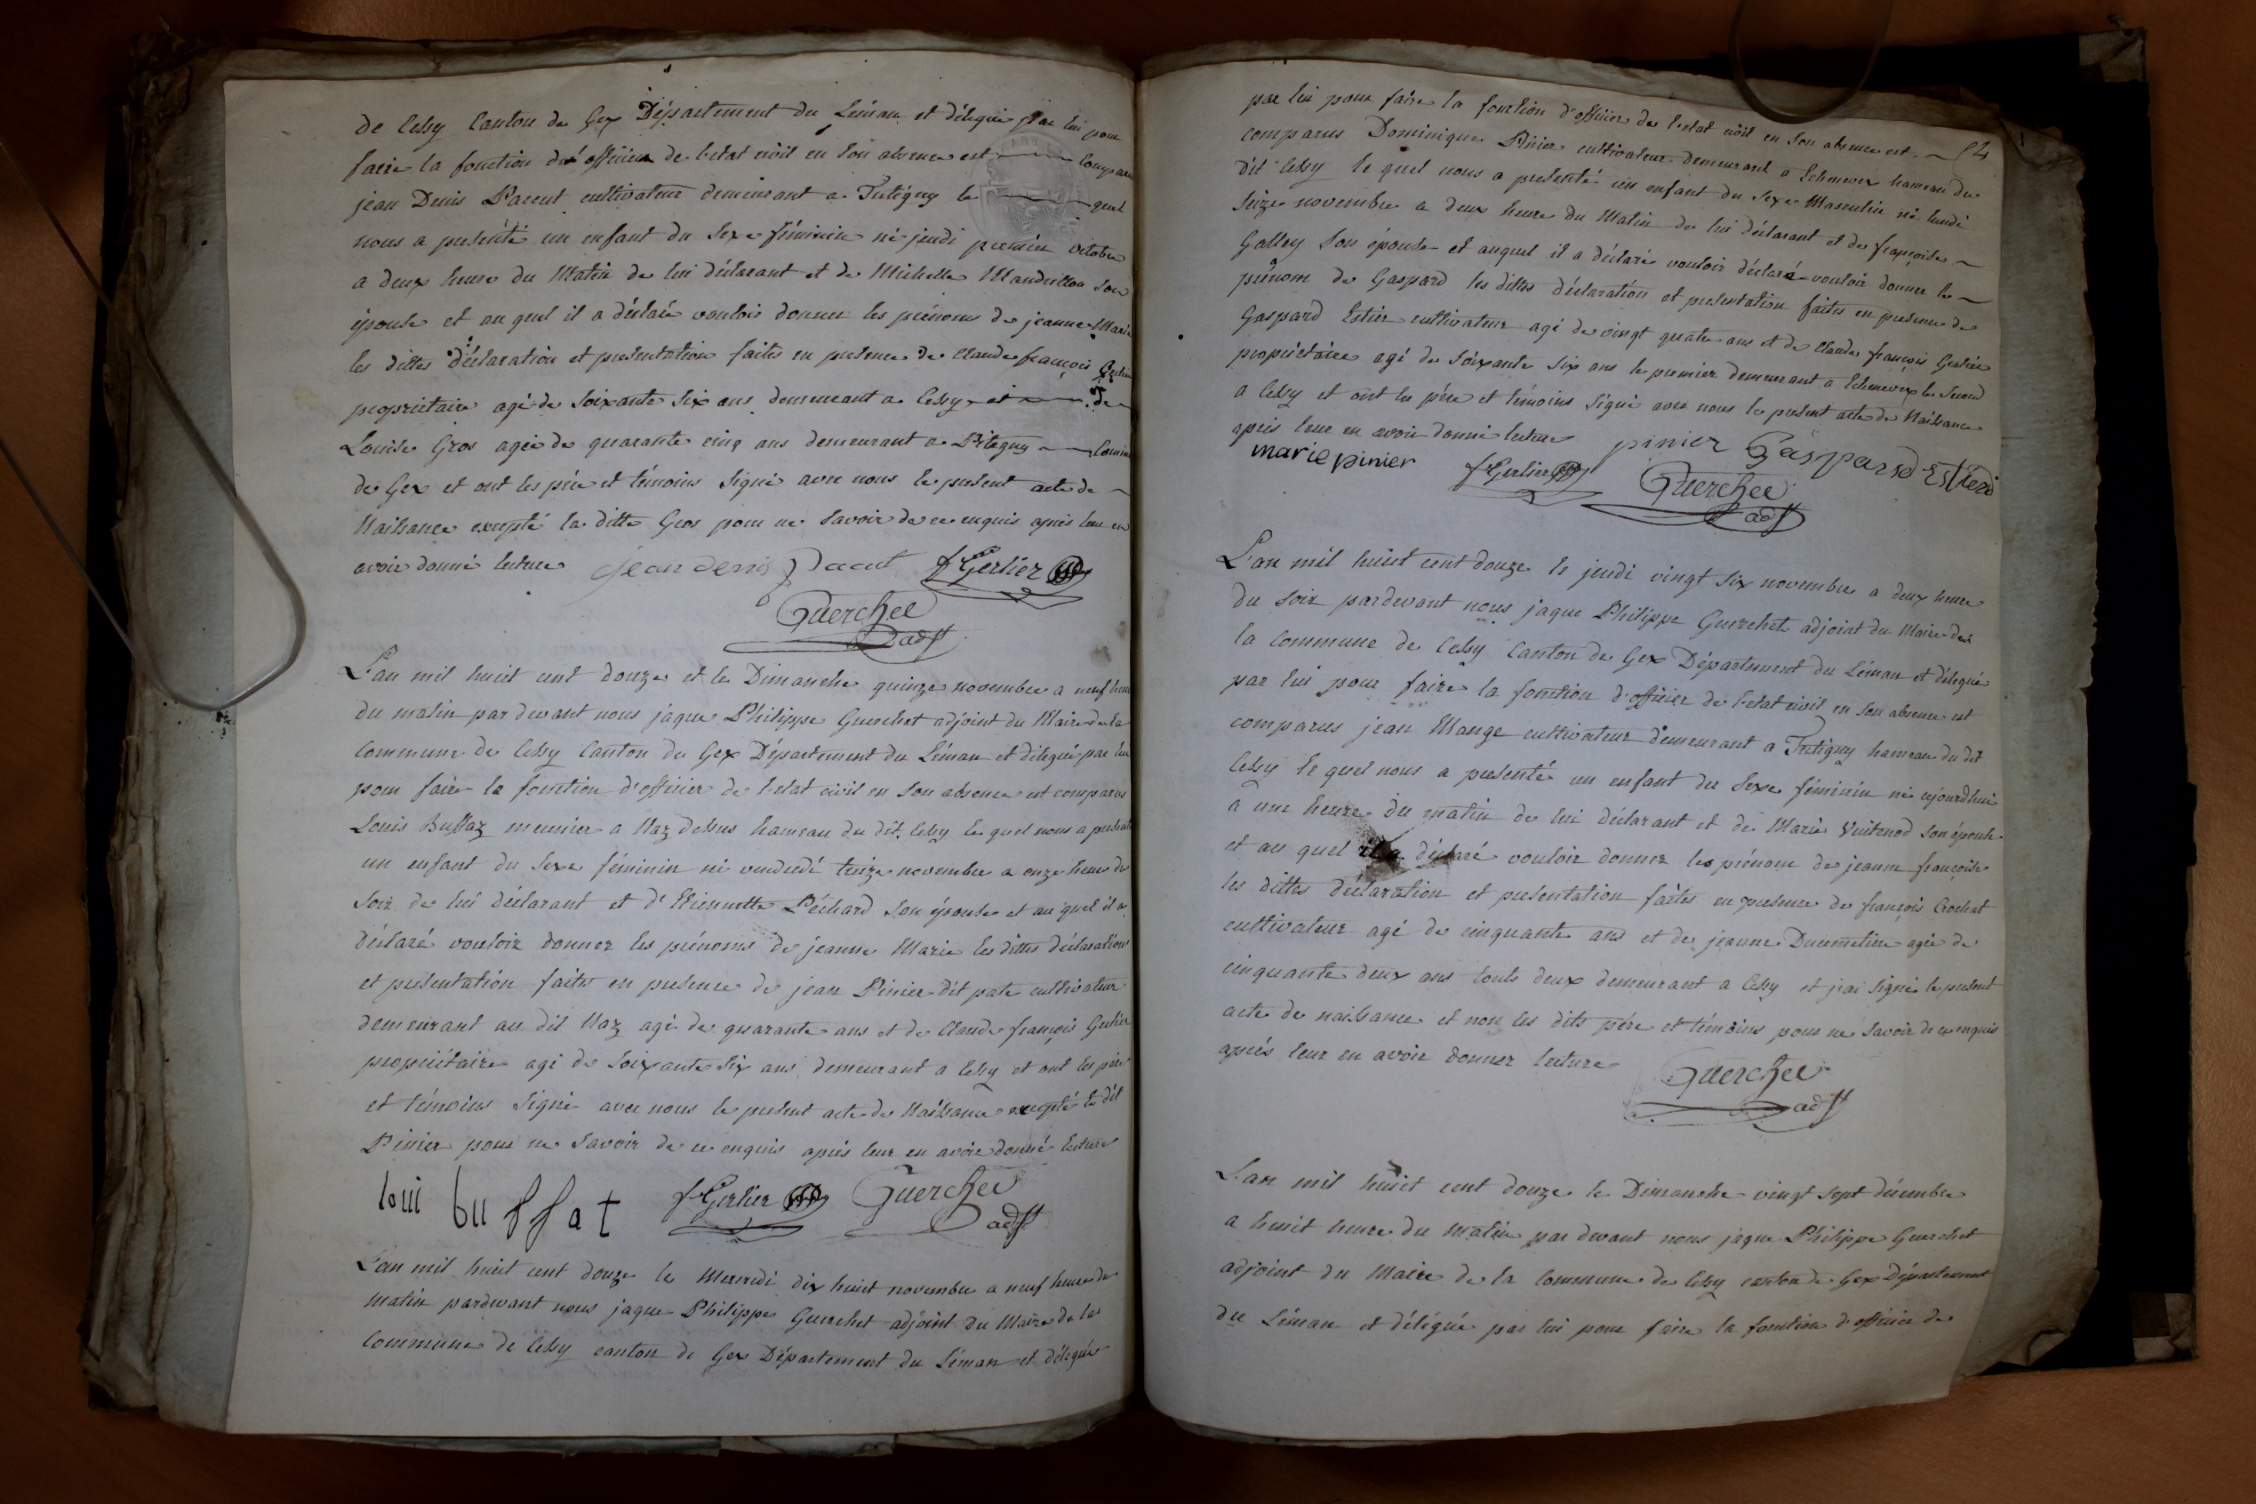 de Cessy Canton de Gex Département du Léman et délegué par lui pour
faire la fonction d'officier de l'etat civil en son absence est comparu
jean Denis Parent cultivateur demeurant a Tutigny le quel
nous a presenté un enfant du Sexe féminin né jeudi premier octobre
a deux heure du Matin de lui déclarant et de Michelle Mandrillon son
épouse et au quel il a déclaré vouloir donner les prénoms de jeanne Marie
les dittes déclaration et presentation faites en presence de Claude françois Gerlier
propriétaire agé de Soixante Six ans demeurant a Cessy et de
Louise Gros agée de quarante cinq ans demeurant a Pitegny
de Gex et ont les pére et témoins Signé avec nous le present acte de
Naissance excepté la ditte Gros pour ne Savoir de ce enquis après leur en
avoir donné lecture jean denis Parent f Gerlier
Guerchet
adjt
L'an mil huit cent douze et le Dimanche quinze novembre a neuf heure
du matin par devant nous jaque Philippe Guerchet adjoint du Maire de la
Commune de Cessy Canton de Gex Département du Léman et délegué par lui
pour faire la fonction d'officier de l'etat civil en Son absence est comparus
Louis Buffaz meunier a Naz dessus hameau du dit Cessy le quel nous a presenté
un enfant du Sexe féminin né vendredi treize novembre a onze heure du
Soir de lui déclarant et d'Etiennette Péchard Son épouse et au quel il a
déclaré vouloir donner les prénoms de jeanne Marie les dittes déclaration
et présentation faites en presence de jean Pinier dit pate cultivateur
demeurant au dit Naz agé de quarante ans et de Claude françois Gerlier
propriétaire agé de Soixante Six ans demeurant a Cessy et ont les pére
et témoins Signé avec nous le present acte de Naissance excepté le dit
Pinier pour ne Savoir de ce enquis après leur en avoir donné lecture
loui buffat f Gerlier Guerchet
adjt
L'an mil huit cent douze le Mercredi dix huit novembre a neuf heure du
Matin pardevant nous jaque Philippe Guerchet adjoint du Maire de la
Commune de Cessy canton de Gex Département du Léman et délegué
par lui pour faire la fonction d'officier de l'etat civil en Son absence est
comparus Dominique Pinier cultivateur demeurant a Echenevex hameau du
dit Cessy le quel nous a presenté un enfant du Sexe Masculin né lundi
Seize novembre a deux heure du Matin de lui déclarant et de françoise
Galley Son épouse et auquel il a déclaré vouloir déclaré vouloir donner le
prénom de Gaspard les dittes déclaration et presentation faites en presence de
Gaspard Estier cultivateur agé de vingt quatre ans et de Claude françois Gerlier
propriétaire agé de Soixante Six ans le premier demeurant a Echenevex le Second
a Cessy et ont les pére et témoins Signé avec nous le present acte de Naissance
après leur en avoir donné lecture pinier Gaspard Estier
marie pinier f Gerlier Guerchet
adjt
L'an mil huit cent douze le jeudi vingt Six novembre a deux heure
du Soir pardevant nous jaque Philippe Guerchet adjoint du Maire de
la Commune de Cessy Canton de Gex Département du Léman et délegué
par lui pour faire la fonction d'officier de l'etat civil en Son absence est
comparus jean Mange cultivateur demeurant a Tutigny hameau du dit
Cessy le quel nous a presenté un enfant du Sexe féminin né ajourdhui
a une heure du matin de lui déclarant et de Marie Vuitenod Son épouse
et au quel il a déclaré vouloir donner les prénom de jeanne françoise
les dittes déclaration et presentation faites en presence de françois Crochat
cultivateur agé de cinquante ans et de jeanne Ducimetière agée de
cinquante deux ans touts deux demeurant a Cessy et j'ai Signé le present
acte de naissance et non les dits pére et témoins pour ne Savoir de ce enquis
après leur en avoir donner lecture
Guerchet
adjt
L'an mil huit cent douze le Dimanche vingt Sept décembre
a huit heure du Matin par devant nous jaque Philippe Guerchet
adjoint du Maire de la Commune de Cessy canton de Gex Département
du Léman et délégué par lui pour faire la fonction d'officier de